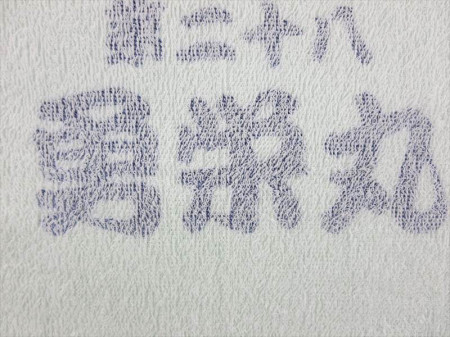 第二十八
勇栄丸